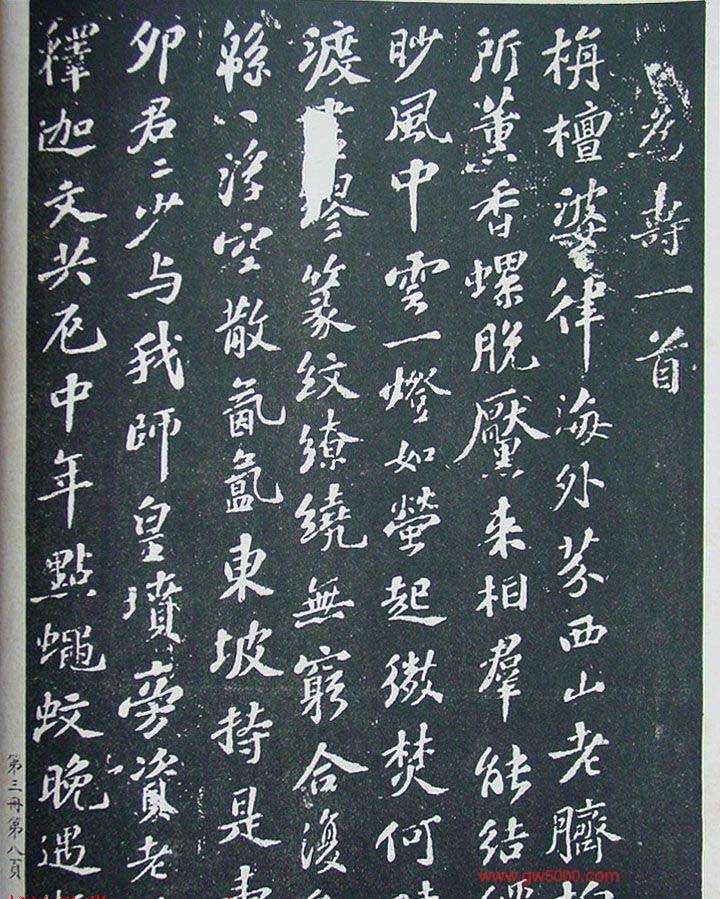 為壽一首
栴檀婆律海外芬西山老臍
所薰香螺脫黶来相羣能結
眇風中雲一燈如螢起微焚何
渡繆篆紋繚繞無窮合復
緜〻浮空散氤氳東坡持是
卯君〻少与我師皇墳旁資老
釋迦文共厄中年點蠅蚊晚遇
第三冊第八頁
www.gw5000.com